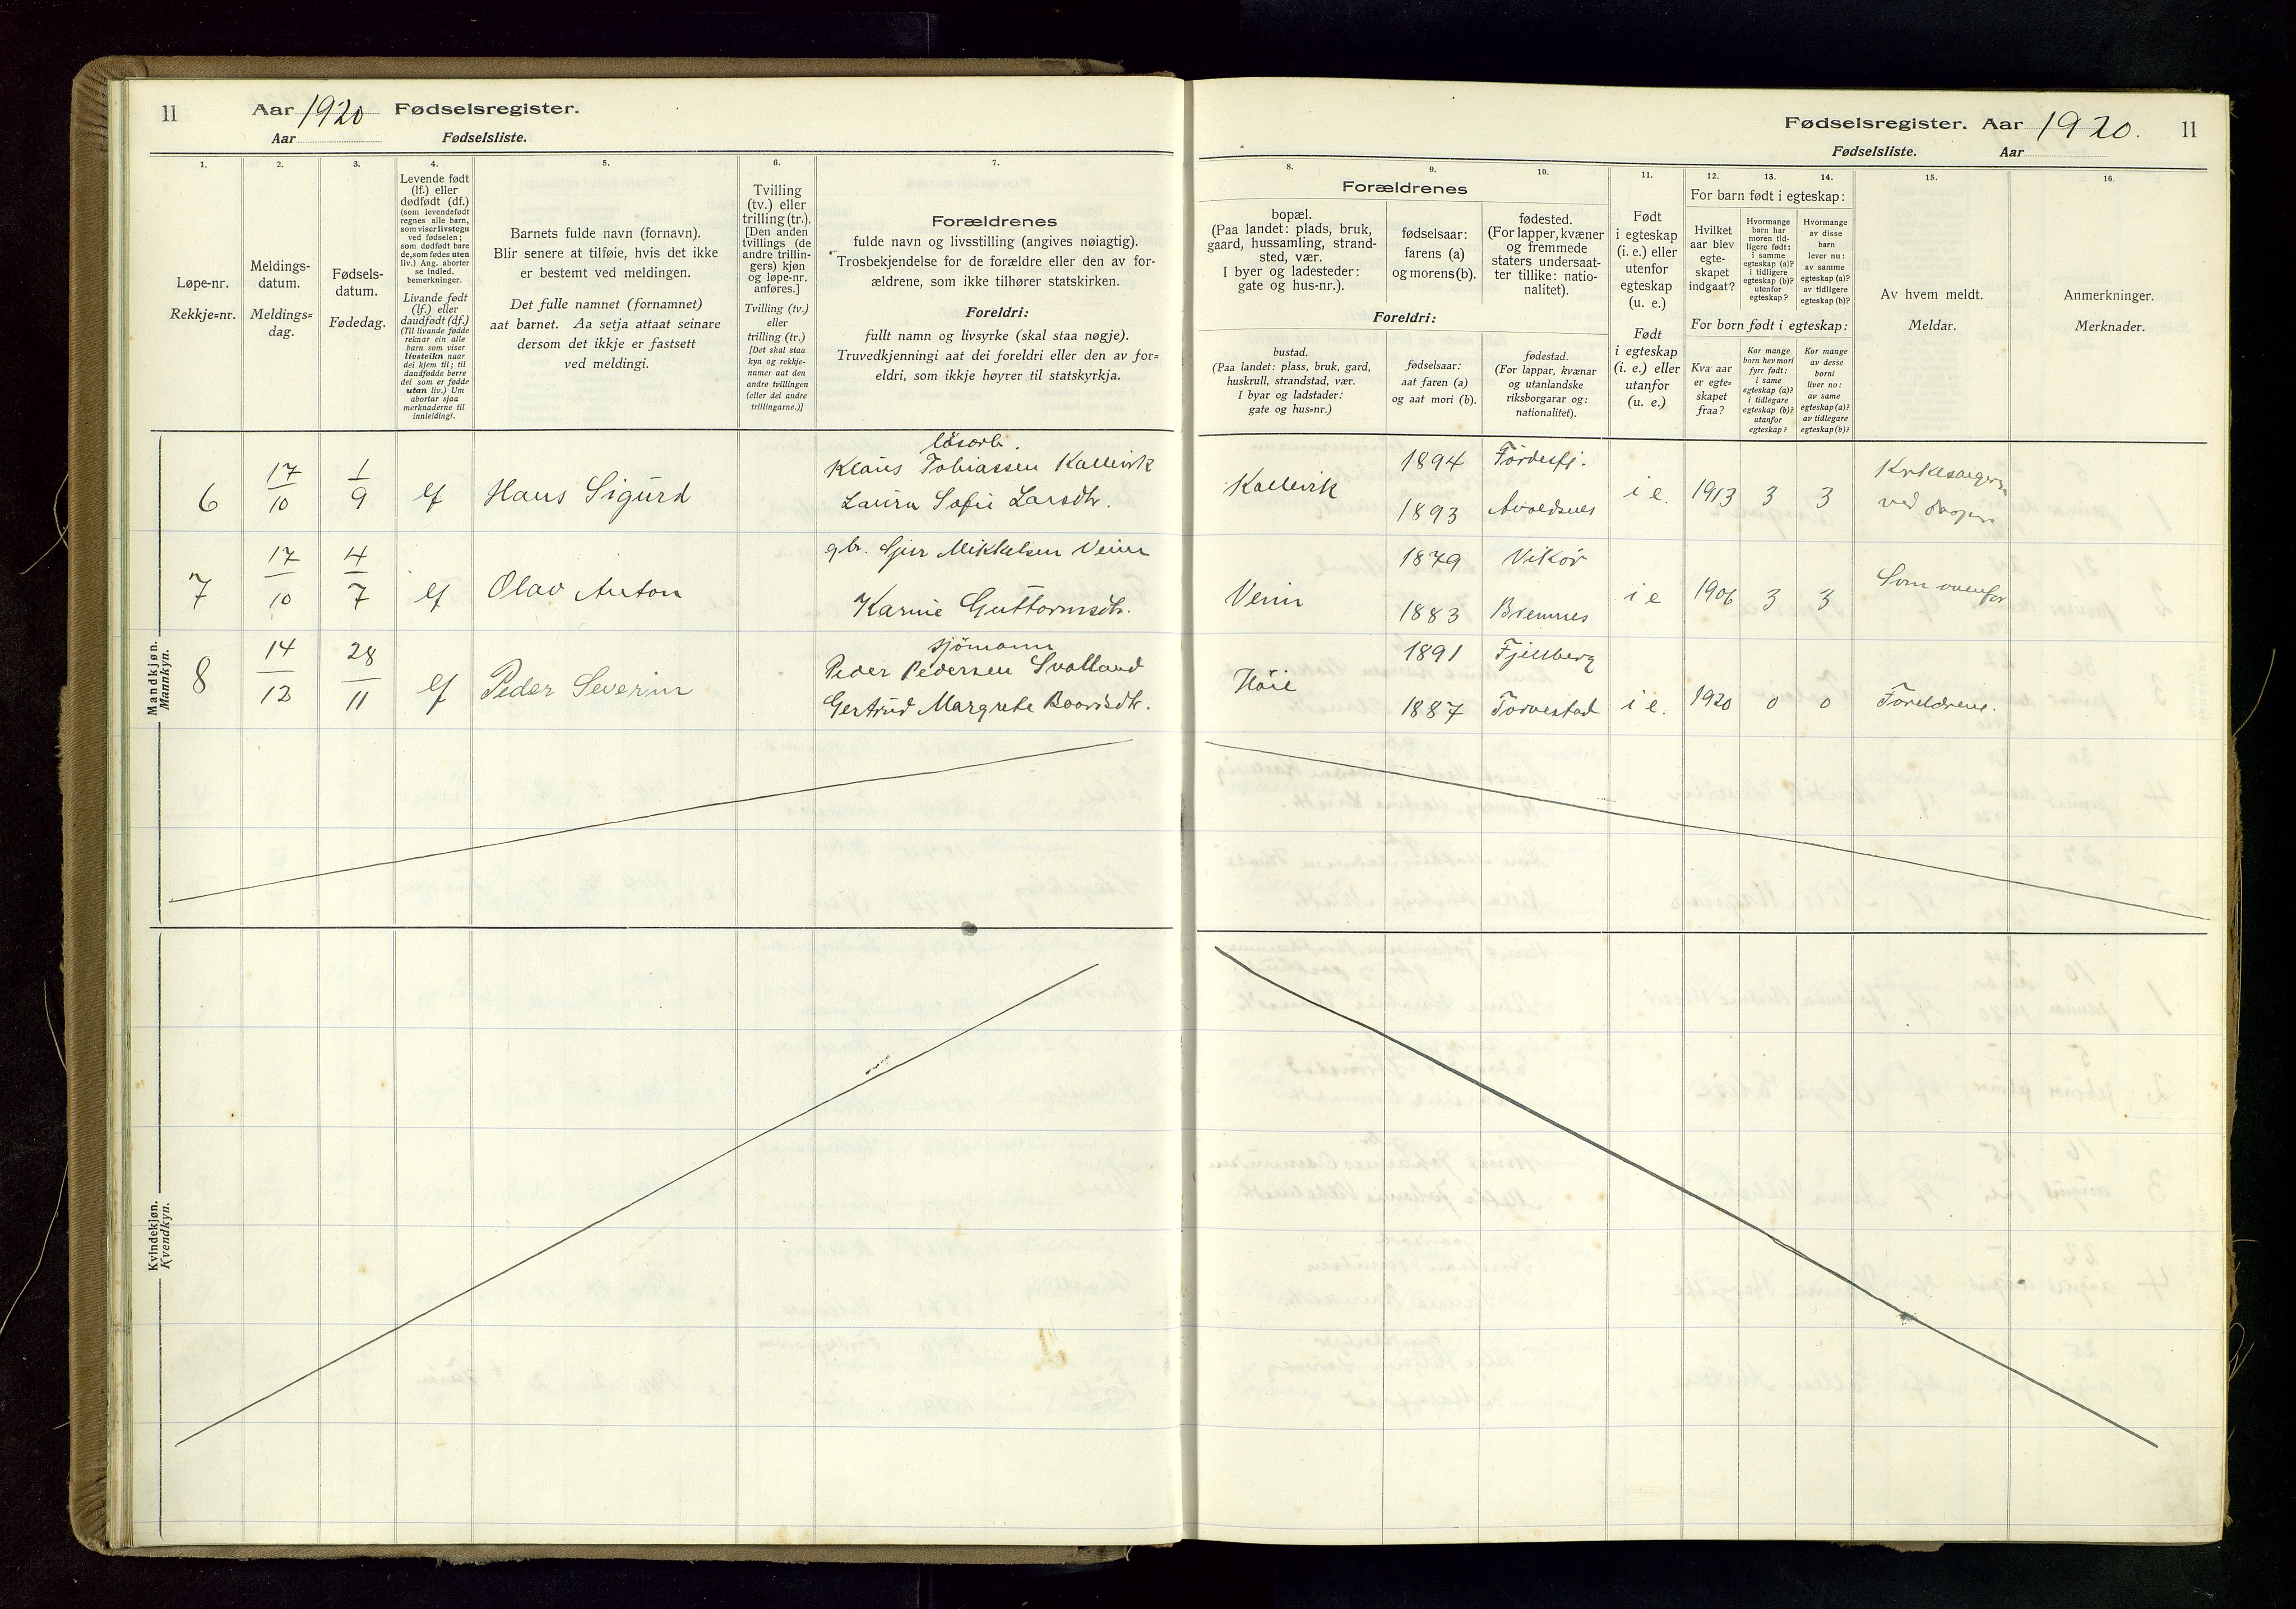 11
Aar 1920 Fødselsregister.
Aar Fødselsliste.
1.
2.
3.
4.
5.
6.
7.
Løpe-nr.
Rekkje=nr.
Meldings-
datum.
Meldings=
dag.
Fødsels-
datum.
Fødedag.
Levende født
(lf.) eller
dødfødt (df.)
(som levendefødt
regnes alle barn,
som viser livstegn
ved fødselen;
som dødfødt bare
de, som fødes uten
liv.) Ang. aborter
se indled.
bemerkninger.
Livande født
(lf.) eller
daudfødt (df.)
(Til livande fødde
reknar ein alle
barn som viser
livsteikn naar
dei kjem til; til
daudfødde berre
dei som er fødde
utan liv.) Um
abortar sjaa
merknaderne til
innleidingi.
Barnets fulde navn (fornavn).
Blir senere at tilføie, hvis det ikke
er bestemt ved meldingen.
Det fulle namnet (fornamnet)
aat barnet. Aa setja attaat seinare
dersom det ikkje er fastsett
ved meldingi.
Tvilling
(tv.) eller
trilling (tr.).
[Den anden
tvillings (de
andre trillin-
gers) kjøn
og løpe-nr.
anføres.]
Tvilling (tv.)
eller
trilling (tr.)
[Det skal staa
kyn og rekkje-
numer aat den
andre tvillingen
(eller dei andre
trillingarne.)]
Forældrenes
fulde navn og livsstilling (angives nøiagtig).
Trosbekjendelse for de forældre eller den av for-
ældrene, som ikke tilhører statskirken.
Foreldri:
fullt namn og livsyrke (skal staa nøgje).
Truvedkjenningi aat dei foreldri eller den av for=
eldri, som ikkje høyrer til statskyrkja.
Mandkjøn.
Mannkyn.
6 17/10 1/9 lf Hans Sigurd
løsarb.
Klaus Tobiassen Kallevik
Laura Sofie Larsdtr.
7 17/10 4/7 lf Olav Anton
gbr. Sjur Mikkelsen Veim
Karine Guttormsdtr.
8 14/12 28/11 lf Peder Severin
sjømann
Peder Pedersen Svolland
Gertrud Margrete Boordsdtr.
Kvindekjøn.
Kvendkyn.
Fødselsregister. Aar 1920. 11
Fødselsliste. Aar
8.
9.
10.
11.
12.
13.
14.
15.
16.
Forældrenes
bopæl.
(Paa landet: plads, bruk,
gaard, hussamling, strand-
sted, vær.
I byer og ladesteder:
gate og hus-nr.).
fødselsaar:
farens (a)
og morens (b).
fødested.
(For lapper, kvæner
og fremmede
staters undersaat-
ter tillike: natio-
nalitet).
Foreldri:
bustad.
(Paa landet: plass, bruk, gard,
huskrull, strandstad, vær.
I byar og ladstader:
gate og hus=nr.)
fødselsaar:
aat faren (a)
og aat mori (b).
fødestad.
(For lappar, kvænar
og utanlandske
riksborgarar og:
nationalitet).
Født
i egteskap
(i. e.) eller
utenfor
egteskap
(u. e.)
Født
i egteskap
(i. e.) eller
utanfor
(u. e.)
For barn født i egteskap:
Hvilket
aar blev
egte-
skapet
indgaat?
Hvormange
barn har
moren tid-
ligere født:
i samme
egteskap (a)?
i tidligere
egteskap (b)?
utenfor
egteskap?
Hvormange
av disse
barn
lever nu:
av samme
egteskap (a)?
av tidligere
egteskap (b)?
For born født i egteskap:
Kva aar
er egte=
skapet
fraa?
Kor mange
born hev mori
fyrr født:
i same
egteskap (a)?
i tidlegare
egteskap (b)?
utanfor
egteskap?
Kor mange
av desse
borni
liver no:
av same
egteskap (a)?
av tidlegare
egteskap (b)?
Av hvem meldt.
Meldar.
Anmerkninger.
Merknader.
Kallevik 1894 Fördesfj.
1893 Avaldsnes i e. 1913 3 3 Kirkesangeren
ved
Veim 1879 Vikör
1883 Bremnes i e 1906 3 3 Som ovenfor
Höie 1891 Fjellberg
1887 Torvestad i e. 1920 0 0 Foreldrene.